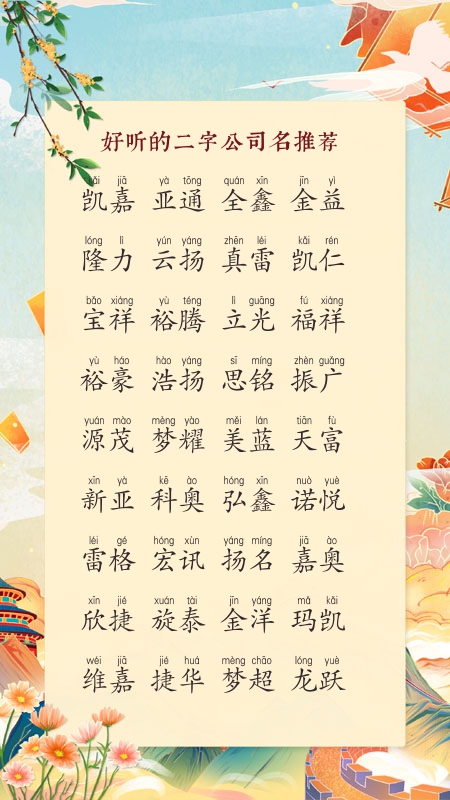 好听的二字公司名推荐
kǎi jiā yà tōng quán xīn jīn yì
凯嘉 亚通 全鑫 金益
lóng lì yún yáng zhēn léi kǎi rén
隆力 云扬 真雷 凯仁
bǎo xiáng yù téng lì guāng fú xiáng
宝祥 裕腾 立光 福祥
yù háo hào yáng sī míng zhèn guǎng
裕豪 浩扬 思铭 振广
yuán mào mèng yào měi lán tiān fù
源茂 梦耀 美蓝 天富
xīn yà kē ào hóng xīn nuò yuè
新亚 科奥 弘鑫 诺悦
léi gé hóng xùn yáng míng jiā ào
雷格 宏讯 扬名 嘉奥
xīn jié xuán tài jīn yáng mǎ kǎi
欣捷 旋泰 金洋 玛凯
wéi jiā jié huá mèng chāo lóng yuè
维嘉 捷华 梦超 龙跃